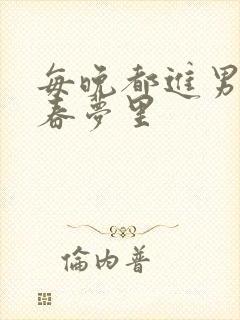 每晚都进男
春夢里
倫内普